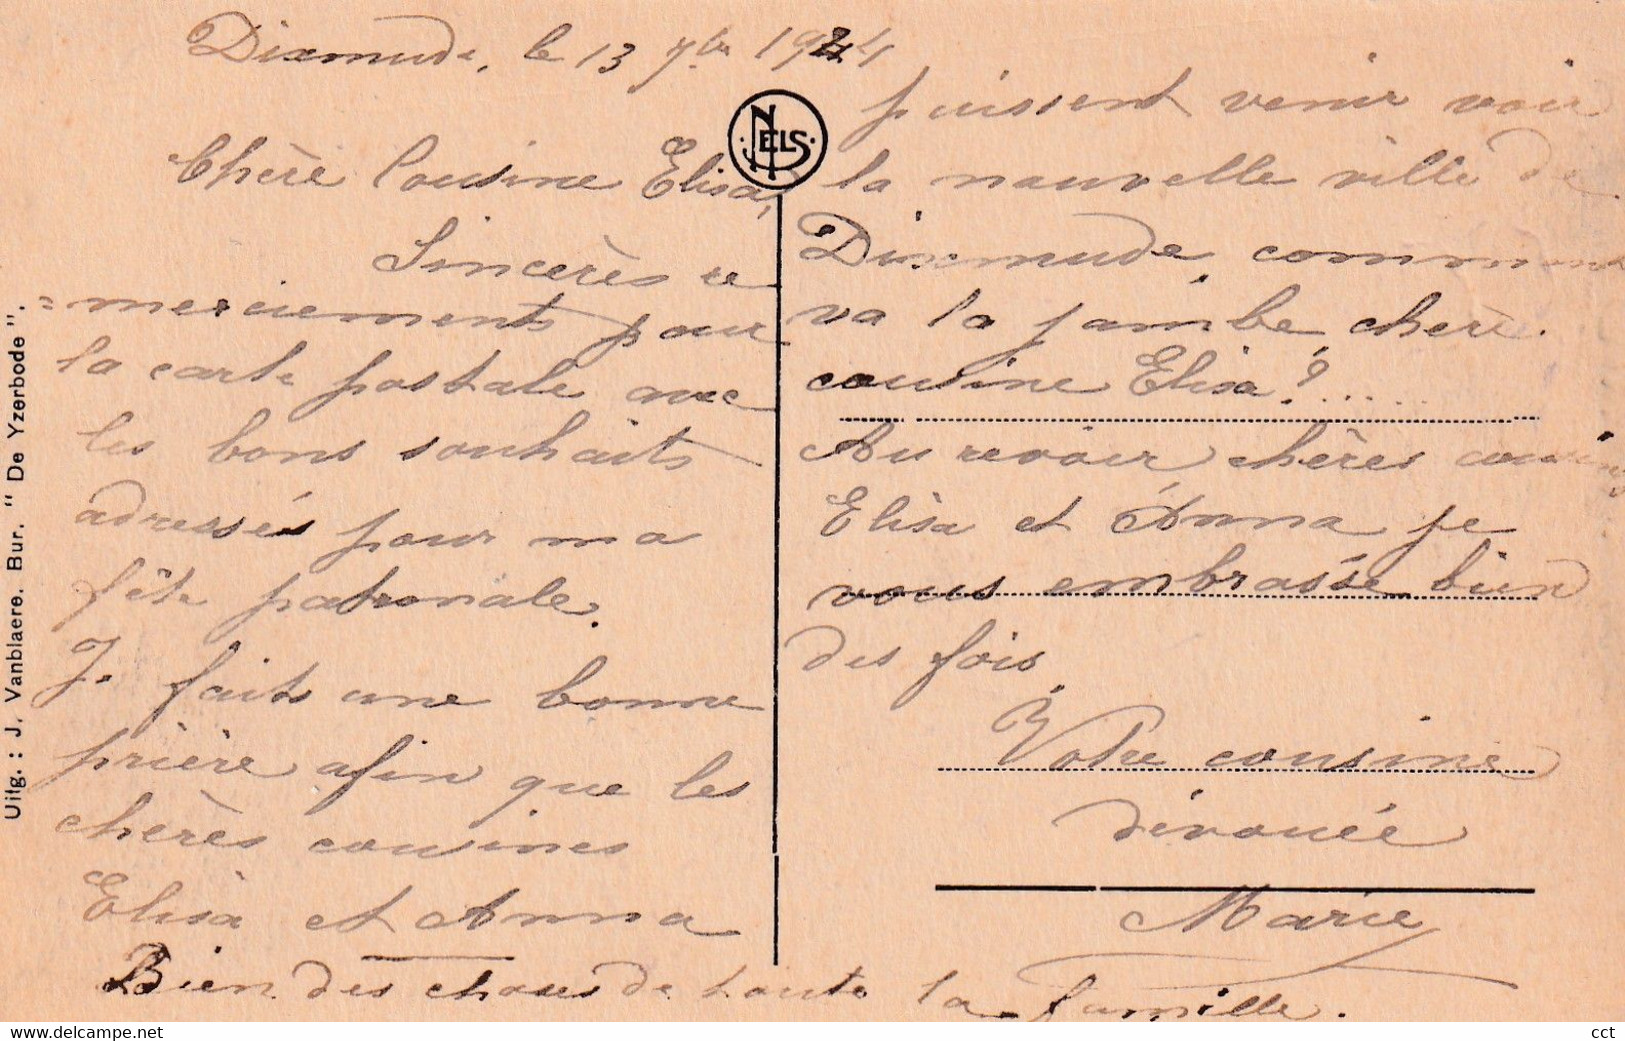 Dixmude, le 13 7bre 1924
Chère Cousine Elisa,
Sincères re
=merciements pour
la carte postale avec
les bons souhaits
adressés pour ma
fête patronale.
Je faits une bonne
prière afin que les
chères cousines
Elisa et Anna
puissent venir voir
la nouvelle ville de
Dixmude, comment
va la jambe chère
cousine Elisa? .....
Au revoir chères cousines
Elisa et Anna je
vous embrasse bien
des fois,
Votre cousine
dévouée
Marie
Bien des choses de toute la famille.
NELS
Uitg. : J. Vanblaere. Bur. "De Yzerbode".
cct